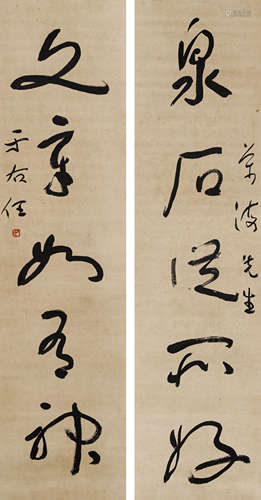 泉石從所好
萬波先生
文章如有神
于右任